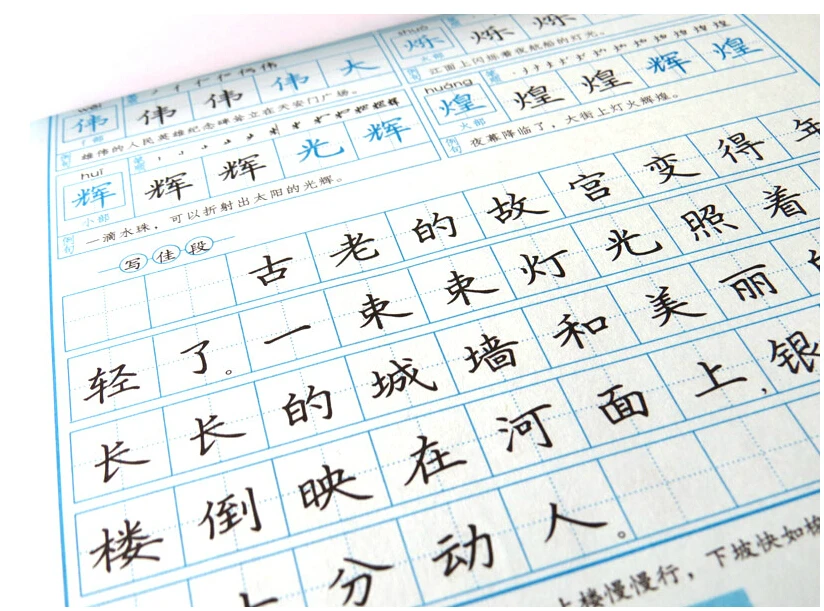 伟 伟 伟 伟 大
亻部
雄伟的人民英雄纪念碑耸立在天安门广场。
huī
辉 辉 辉 光 辉
小部
例句
一滴水珠，可以折射出太阳的光辉。
烁 烁 烁
火部
江面上闪烁着夜航船的灯光。
huáng
煌 煌 煌 辉 煌
火部
例句
夜幕降临了，大街上灯火辉煌。
写佳段
古老的故宫变得年
轻了。一束束灯光照着
长长的城墙和美丽的
楼倒映在河面上，银
十分动人。
上楼慢慢行，下坡快如梭